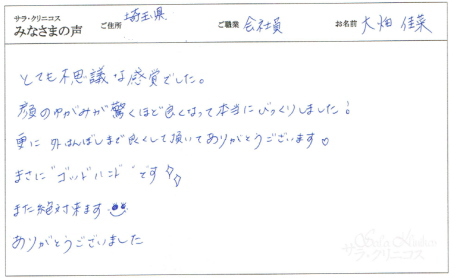 サラ・クリニコス
みなさまの声 ご住所 埼玉県 ご職業 会社員 お名前 大畑 佳菜
とても不思議な感覚でした。
顔のゆがみが驚くほど良くなって本当にびっくりしました!
更に外はんぼしまで良くして頂いてありがとうございます♡
まさに"ゴッドハンド"です
また絶対来ます
ありがとうございました
サラ・クリニコス